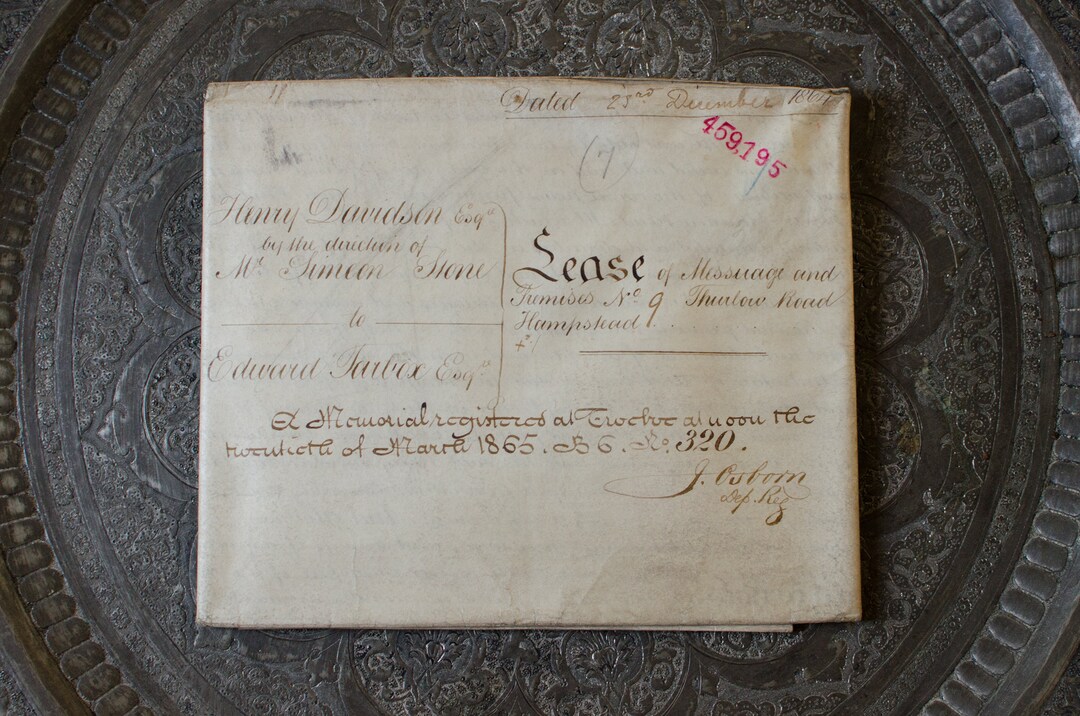 18
Dated 23rd December 1864
459,195
(7)
Henry Davidson Esqre
by the direction of
Mr. Simeon Stone
to
Edward Tarbox Esqre
Lease of Messuage and
Premises No. 9 Thurlow Road
Hampstead
A Memorial registered at Twelve at noon the
twentieth of March 1865. B 6. No. 320.
J. Osborn
Dep. Reg